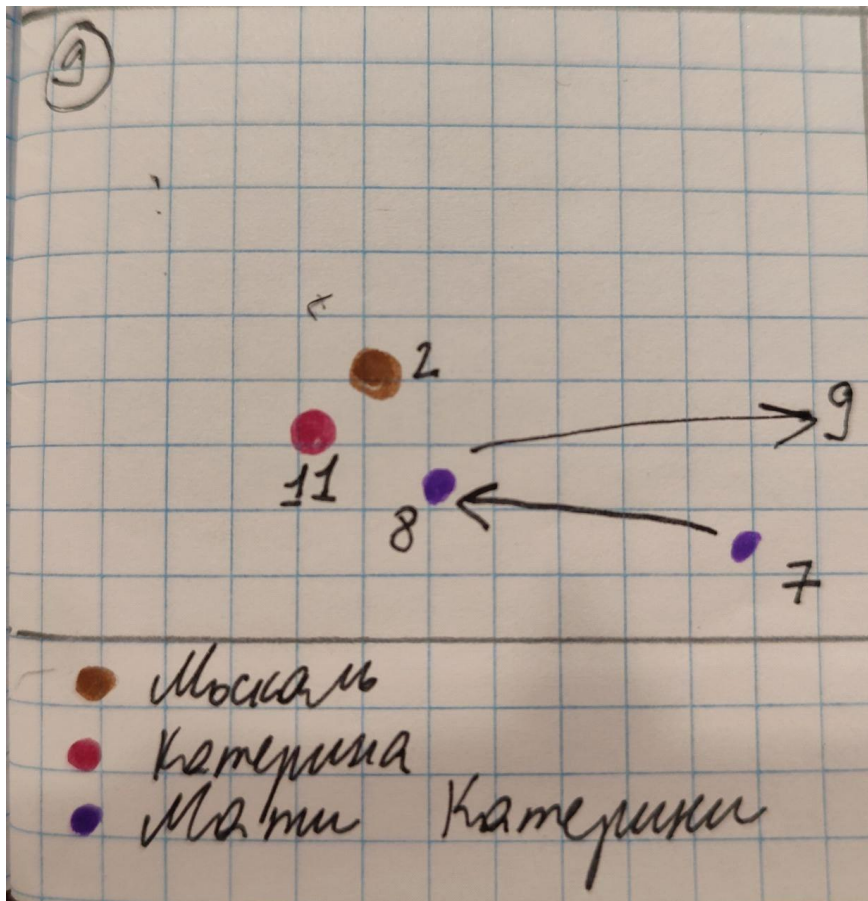 9
2
9
11
8
7
Москаль
Катерина
Мати Катерини